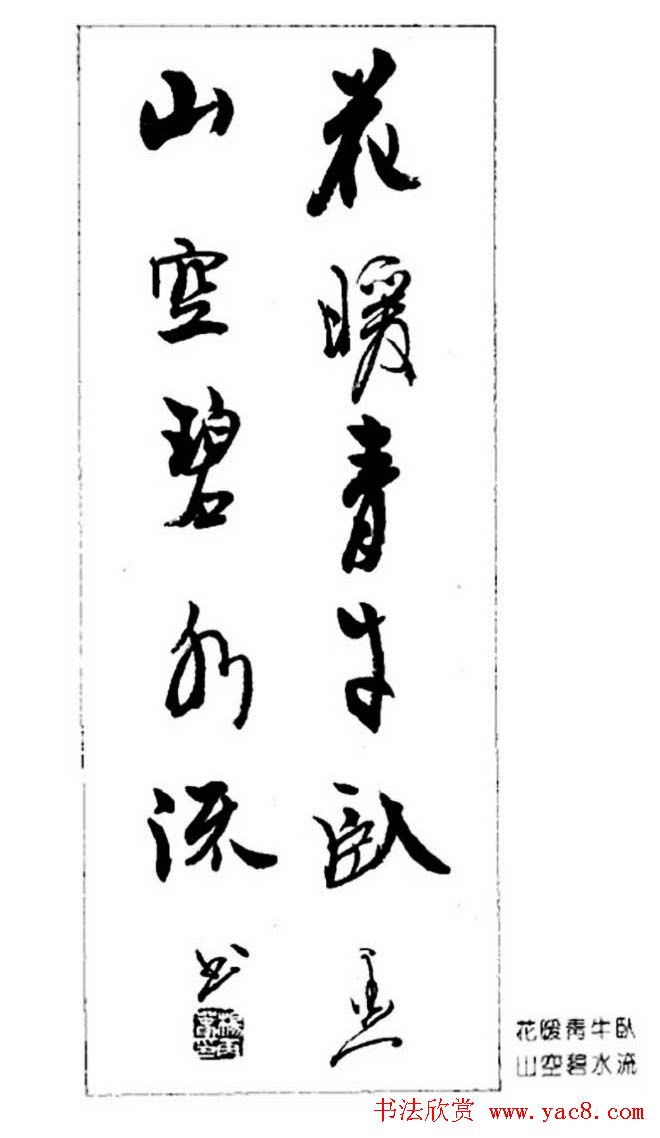 花暖青牛臥
山空碧水流
书
花暖青牛臥
山空碧水流
书法欣赏 www.yac8.com